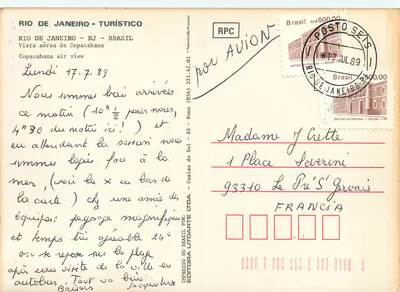 RIO DE JANEIRO - TURÍSTICO
RIO DE JANEIRO - RJ - BRASIL
Vista aérea de Copacabana
Copacabana air view
Lundi 17.7.89
Nous sommes bien arrivés
ce matin (10h 1/2 pour nous,
4h30 du matin ici!) et
en attendant la
sommes face à la
mer, (voir la x en bas de
la carte) chez une amie des
équipes: paysage magnifique
et temps très agréable 24°
on se repose sur la plage
après une visite de la ville en
autobus. Tout va bien
Baisers Jacqueline
EDITORA LITOARTE LTDA.
RPC
par AVION
Brasil 500,00
Brasil 500,00
POSTO SE/S
17 JUL 89
RIO DE JANEIRO-RJ
Madame J Crette
1 Place Severine
93310 Le Pré St Gervais
FRANCIA